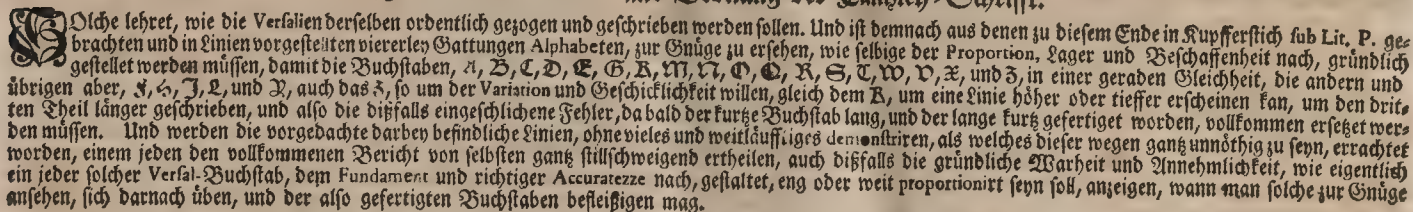 Ordnung der Cantzley-Schrifft.
SOlche lehret, wie die Versalien derselben ordentlich gezogen und geschrieben werden sollen. Und ist demnach aus denen zu diesem Ende in Kupfferstich sub Lit. P. ge-
brachten und in Linien vorgestellten viererley Gattungen Alphabeten, zur Gnüge zu ersehen, wie selbige der Proportion, Lager und Beschaffenheit nach, gründlich
gestellet werden müssen, damit die Buchstaben, A, B, C, D, E, G, K, M, N, O, Q, R, S, T, W, V, X, und Z, in einer geraden Gleichheit, die andern und
übrigen aber, F, H, J, L, und P, auch das Z, so um der Variation und Geschicklichkeit willen, gleich dem K, um eine Linie höher oder tieffer erscheinen kan, um den drit-
ten Theil länger geschrieben, und also die dißfalls eingeschlichene Fehler, da bald der kurtze Buchstab lang, und der lange kurtz gefertiget worden, vollkommen ersetzet wer-
den müssen. Und werden die vorgedachte darbey befindliche Linien, ohne vieles und weitläufftiges demonstriren, als welches dieser wegen gantz unnöthig zu seyn, errachtet
worden, einem jeden den vollkommenen Bericht von selbsten gantz stillschweigend ertheilen, auch dißfalls die gründliche Warheit und Annehmlichkeit, wie eigentlich
ein jeder solcher Versal-Buchstab, dem Fundament und richtiger Accuratezze nach, gestaltet, eng oder weit proportionirt seyn soll, anzeigen, wann man solche zur Gnüge
ansehen, sich darnach üben, und der also gefertigten Buchstaben befleißigen mag.